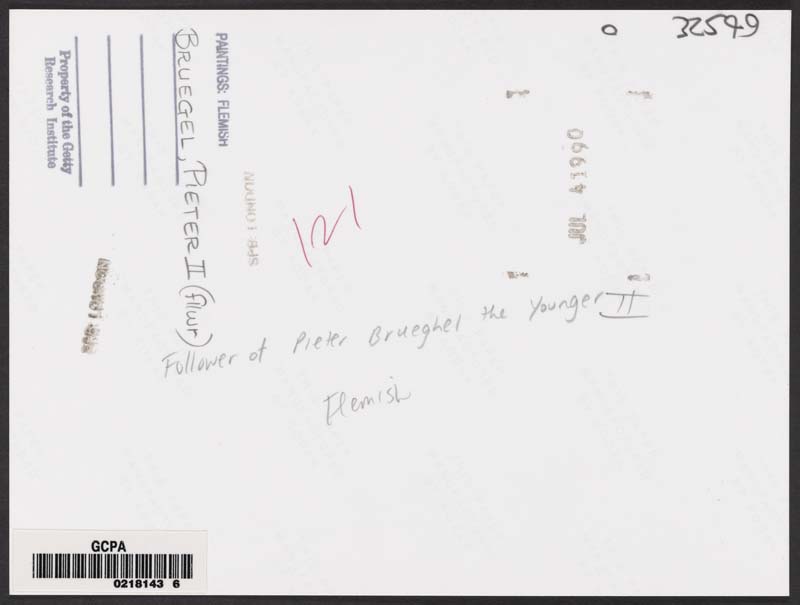 32549
PAINTINGS: FLEMISH
BRUEGEL, PIETER II (fllwr)
Property of the Getty
Research Institute
SPB LONDON
JUL 41990
121
Follower of Pieter Brueghel the Younger II
Flemish
GCPA
0218143 6